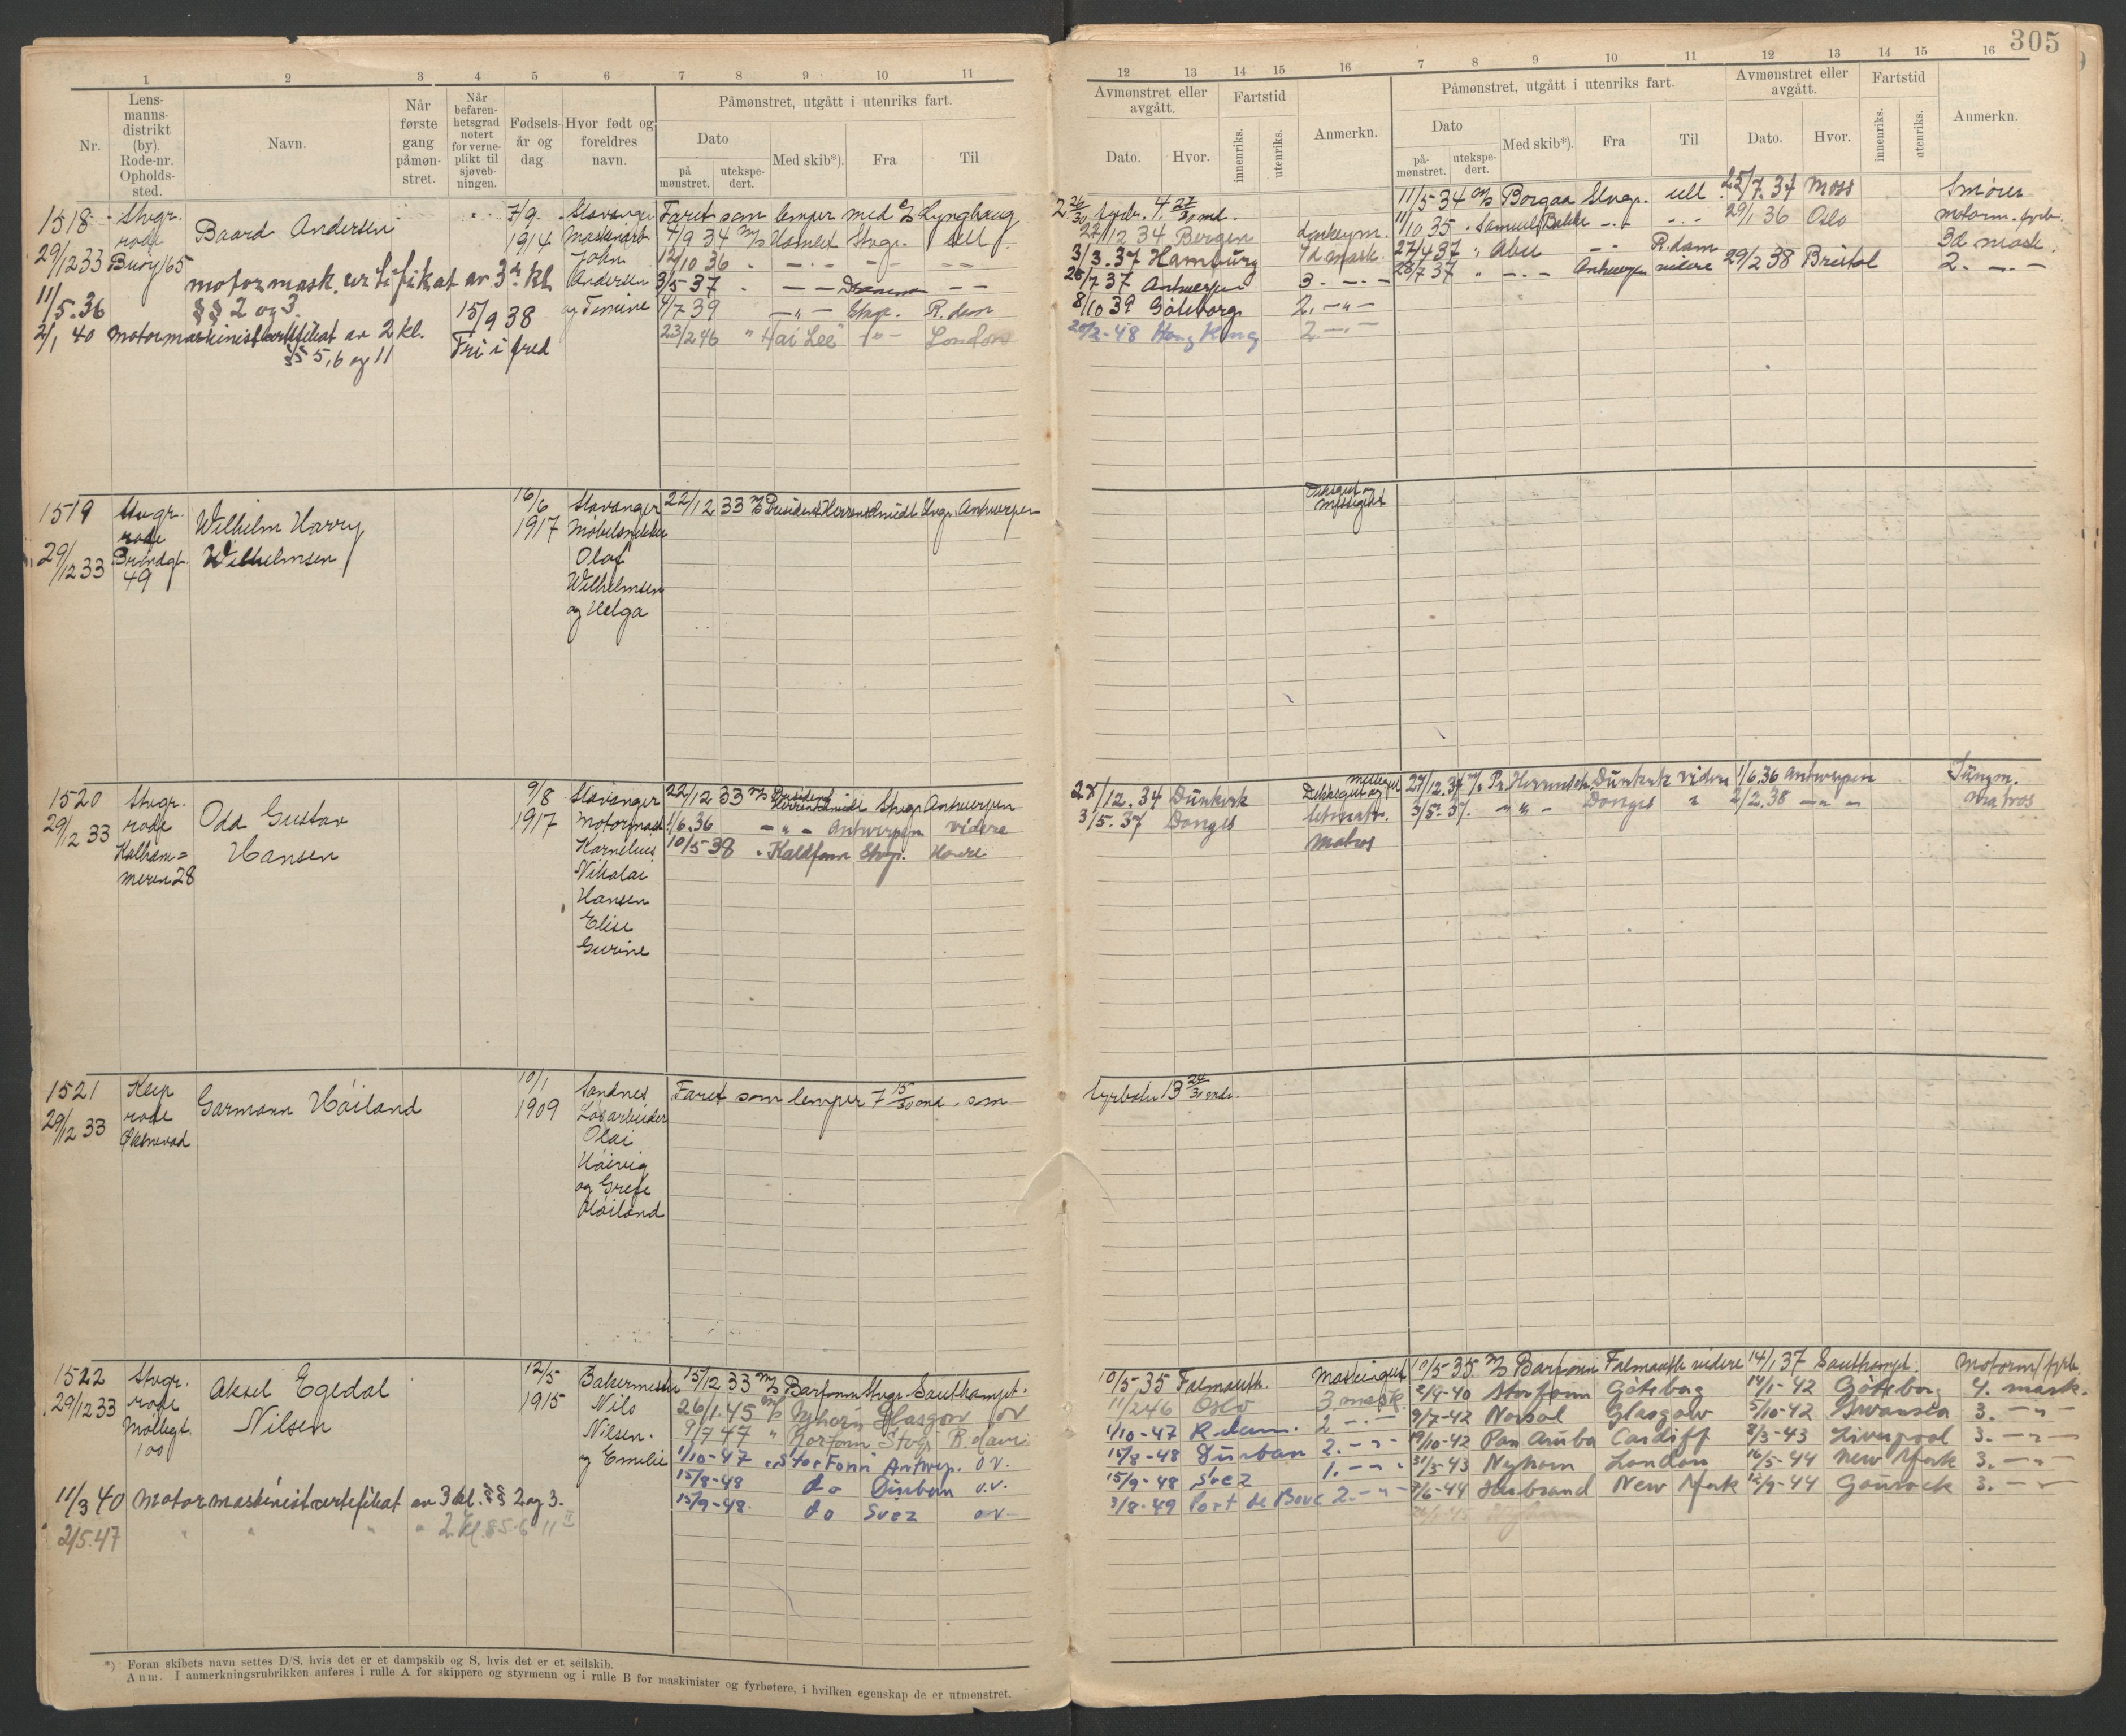 305
1 2 3 4 5 6 7 8 9 10 11
Nr.
Lens-
manns-
distrikt
(by).
Rode-nr.
Opholds-
sted.
Navn.
Når
første
gang
påmøn-
stret.
Når
befaren-
hetsgrad
notert
for verne-
plikt til
sjøveb-
ningen.
Fødsels-
år og
dag
Hvor født og
foreldres
navn.
Påmønstret, utgått i utenriks fart.
Dato
på
mønstret.
utekspe-
dert.
Med skib*).
Fra
Til
12 13 14 15 16 7 8 9 10 11 12 13 14 15 16
Avmønstret eller
avgått.
Dato.
Hvor.
Fartstid
innenriks.
utenriks.
Anmerkn.
Påmønstret, utgått i utenriks fart.
Dato
på-
mønstret.
utekspe-
dert.
Med skib*).
Fra
Til
Avmønstret eller
avgått.
Dato.
Hvor.
Fartstid
innenriks.
utenriks.
Anmerkn.
1518
29/12 33
11/5.36
2/1 40
Stvgr.
rode
165
Baard Andersen
motormask. certifikat av 3 kl
§§ 2 og 3.
Motormaskinistcertifikat av 2 kl.
§§ 5, 6 og 11
15/9 38
Fri i fred
7/9
1914
Stavanger
Maskinarb.
John
Andersen
og
Faret som lemper med D/S Lynghaug
7/9 34 M/S Hamlet Stvgr.
12/10 36 " — " — — " — — —
3/5-37 " — — — —
4/7 39 — " — Stvgr. R.dam
23/2 46 " "Hai Lee" — " — London
2 26/30 fyrb. 4 27/30 md.
22/12 34 Bergen Donkeym.
3/3.37 Hamburg 3d mask.
26/7 37 Antwerpen 3. — " —
8/10 39 Göteborg 2. — " —
20/2-48 Hong Kong 2 — " —
11/5-34 M/S Borgaa Stvgr. 25/7.34 Moss Smører
11/10 35 " Samuel Bakke — " — — " — 29/1 36 Oslo motorm. fyrb.
27/4 37 " — " — R.dam 3d mask.
28/7 37 " — " — Antwerpen videre 29/2 38 Bristol 2. — " —
1519
29/12 33
Stvgr.
rode
49
Wilhelm Harry
Wilhelmsen
16/6
1917
Stavanger
Møbelsnekker
Olaf
Wilhelmsen
og Helga
22/12 33 M/S President Herrenschmidt Stvgr. Antwerpen
Dekksgut og
messegutt
1520
29/12 33
Stvgr.
rode
Kalham=
meren 28
Odd Gustav
Hansen
9/8
1917
Stavanger
Motormask.
Kornelius
Nikolai
Hansen
Elise
Gurine
22/12 33 M/S President Herrenschmidt Stvgr. Antwerpen
1/6.36 — " — Antwerpen videre
10/5 38 " Kaldfonn Stvgr. Havre
27/12.34 Dunkerk Dekksgut og messegut
3/5.37 Donges lettmatr.
Matros
27/12.34 M/S Pr. Herrensch. Dunkerk videre 1/6.36 Antwerpen Jungm.
3/5-37 " " — Donges " 2/2.38 — " — Matros
1521
29/12 33
Klep
rode
Øksnevad
Garmann Høiland
10/1
1909
Sandnes
Løsarbeider
Olai
og Grete
Høiland
Faret som lemper 7 15/30 md. som
fyrbøter 13 24/30 mdr.
1522
29/12 33
11/3 40
2/5.47
Stvgr.
rode
Møllegt.
100
Aksel Egedal
Nilsen
Motormaskinistcertifikat av 3 kl. §§ 2 og 3.
" " " " 2 kl. § 5-6-11
12/5
1915
Bakermester
Nils
Nilsen.
og Emilie
15/12 33 M/S Barfonn Stvgr. Southampt.
26/1.45 M/S Nyhorn Glasgow ov
9/7 47 " Norfonn Stvgr. R.dam
1/10-47 " Storfonn Antwep. o.v.
15/8-48 do Durban o.v.
15/9-48. do Svez o.v.
10/5 35 Falmouth. Maskingutt
11/2 46 Oslo 3 mask.
1/10-47 R.dam. 2 — " —
15/8-48 Durban 2. — " —
15/9-48 Svez 1. — " —
3/8-49 Port de Bouc 2. — " —
10/5-35 M/S Barfonn Falmouth videre 14/1 37 Southampt. Motorm/fyrb.
2/4-40 Storfonn Göteborg 14/1-42 Göteborg 4. mask.
9/7-42 Norsol Glasgow 5/10-42 Swansea 3. — " —
19/10-42 Pan Aruba Cardiff 8/3-43 Liverpool 3. — " —
31/3-43 Nyhorn London 16/5-44 New York 3. — " —
9/6-44 Heibrand New York 12/9-44 Gourock 3. — " —
26/1-45 Nyhorn
*) Foran skibets navn settes D/S, hvis det er et dampskib og S, hvis det er et seilskib.
Anm. I anmerkningsrubrikken anføres i rulle A for skippere og styrmenn og i rulle B for maskinister og fyrbøtere, i hvilken egenskap de er utmønstret.